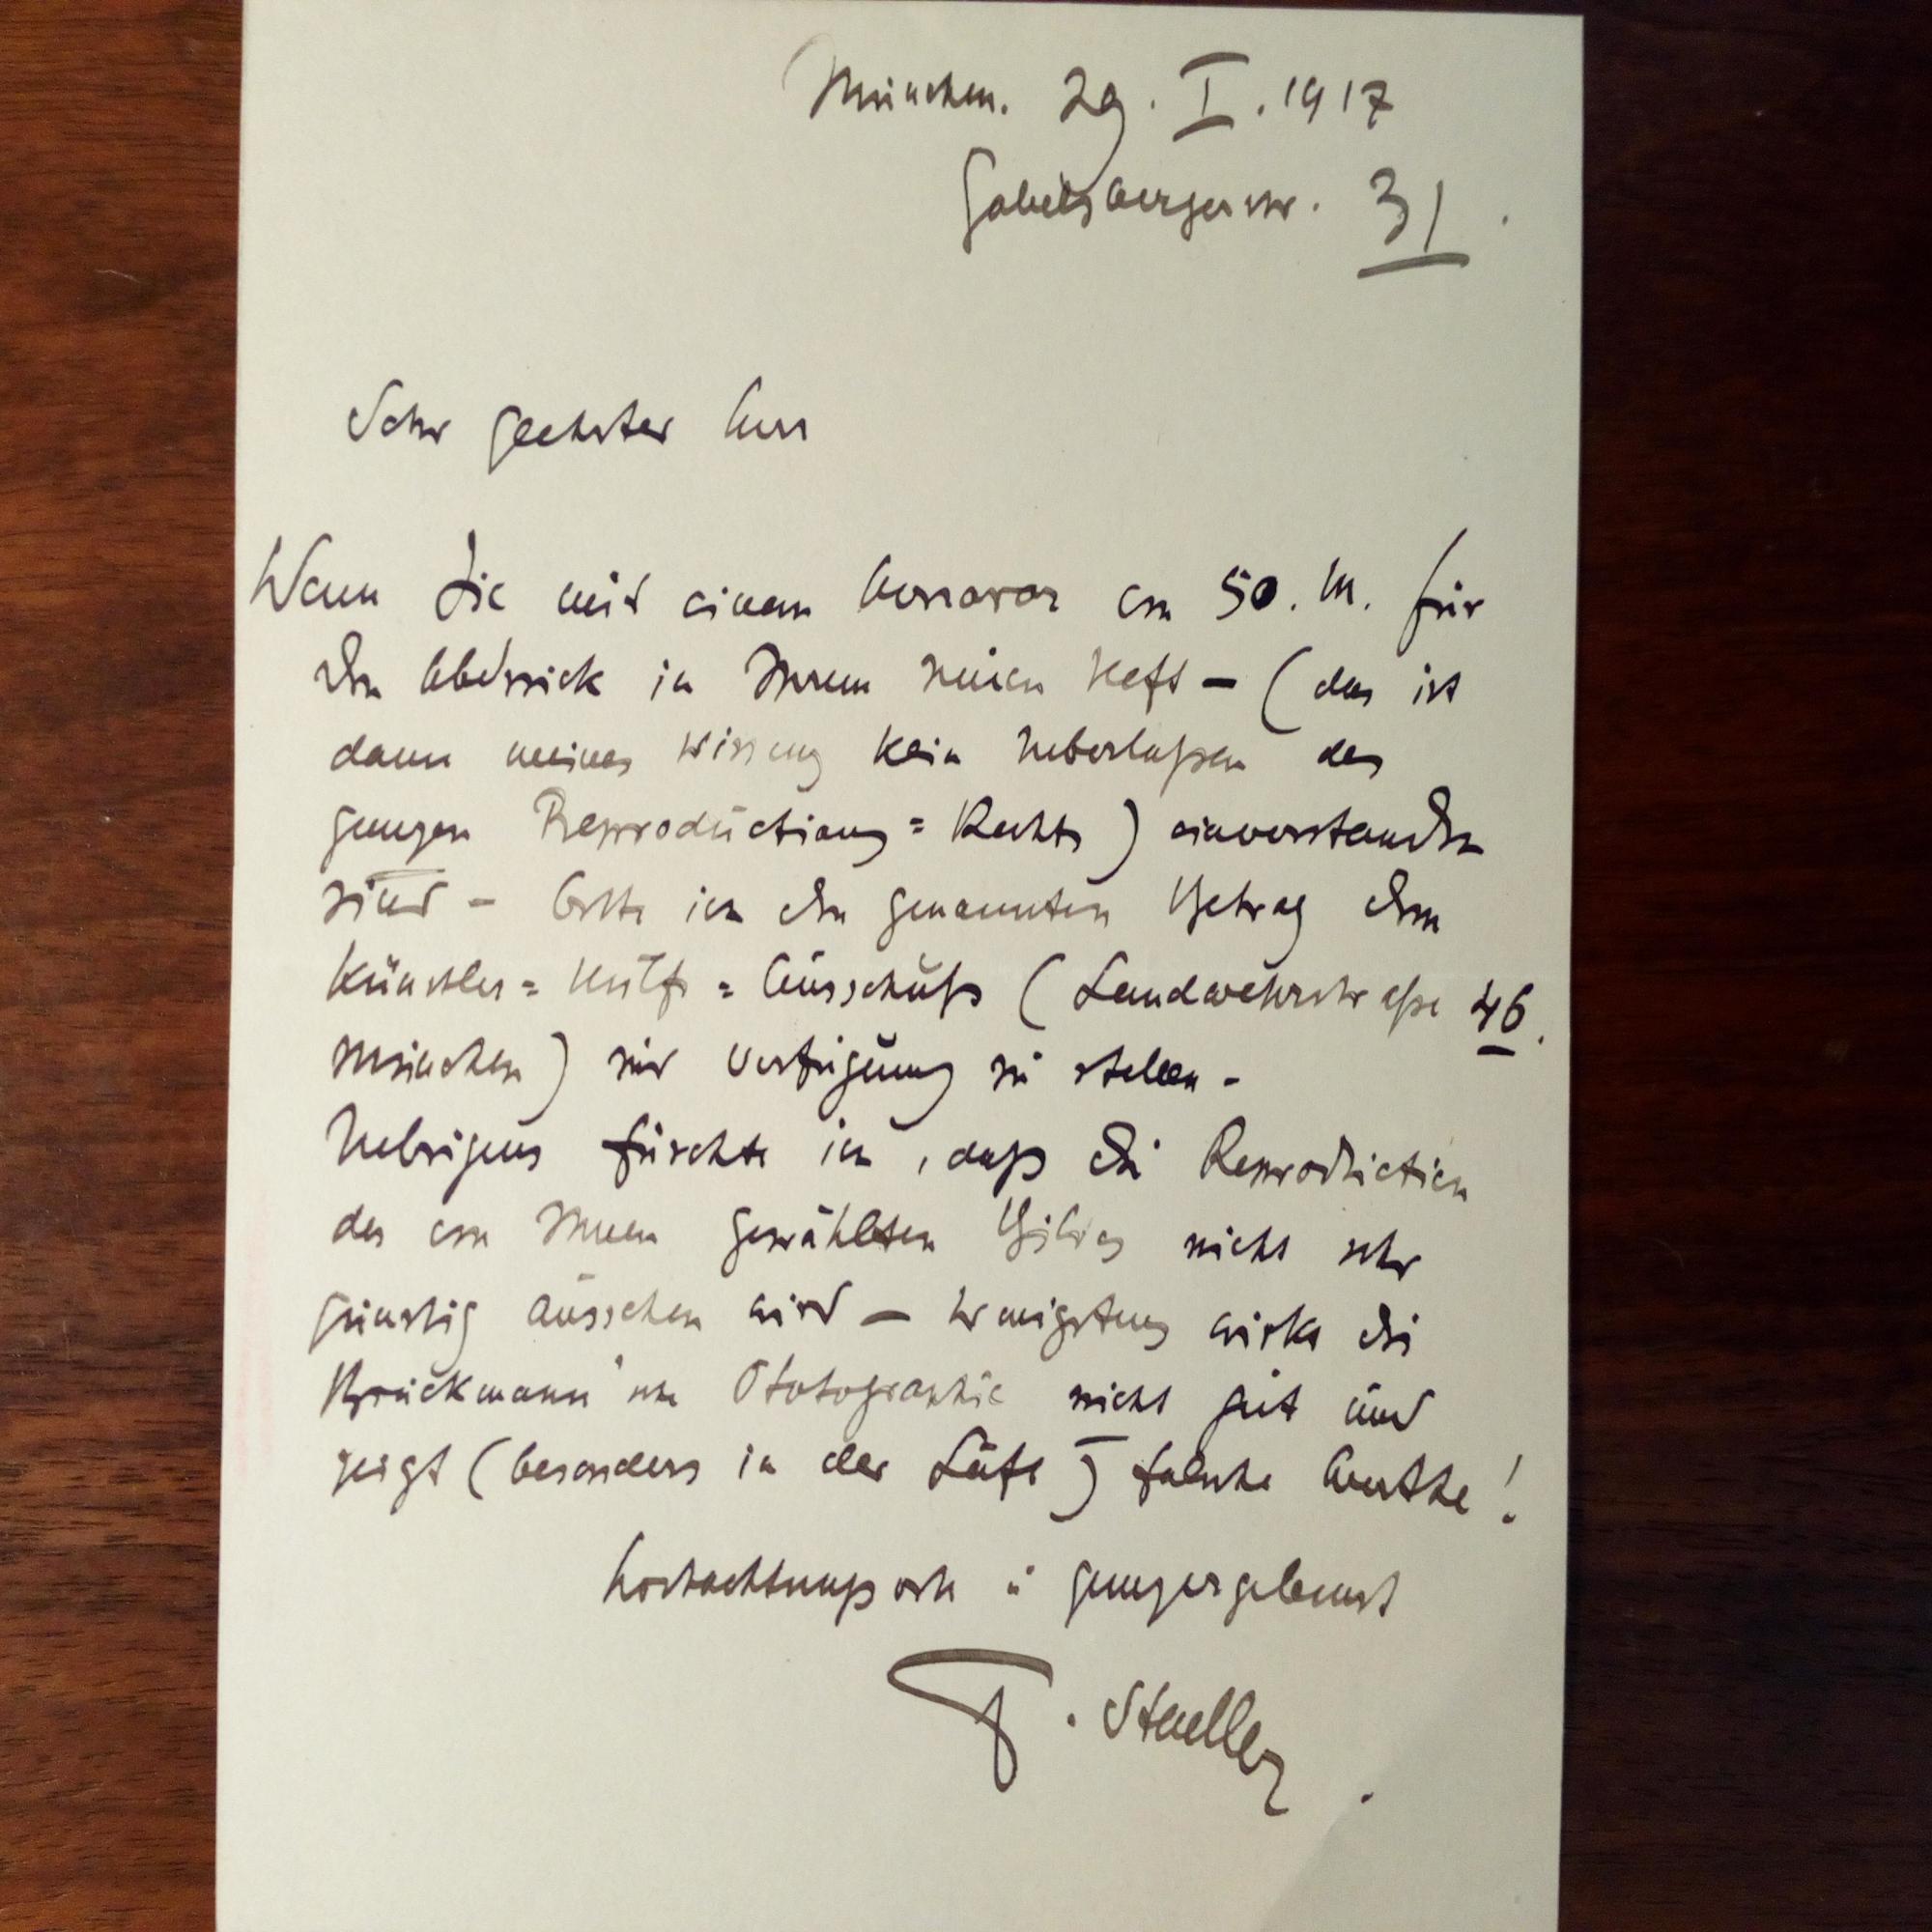 München. 29. I. 1917
Gabelsbergerstr. 31.
Sehr geehrter Herr
Wenn Sie mit einem Honorar von 50. M. für
den Abdruck in Ihrem neuen Heft — (das ist
dann meines Wissens kein Ueberlaßen des
ganzen Reproductions=Rechts) einverstanden
sind — bitte ich den genannten Betrag dem
Künstler=Hülfs=Ausschuß (Landwehrstraße 46.
München) zur Verfügung zu stellen -
Uebrigens fürchte ich, daß die Reproduction
des von Ihnen gewählten Bildes nicht sehr
günstig aussehen wird — wenigstens wirkt die
Bruckmann'sche Photographie nicht gut und
zeigt (besonders in der Luft) falsche Werthe!
Hochachtungsvoll u ganz ergebenst
T. Stadler.